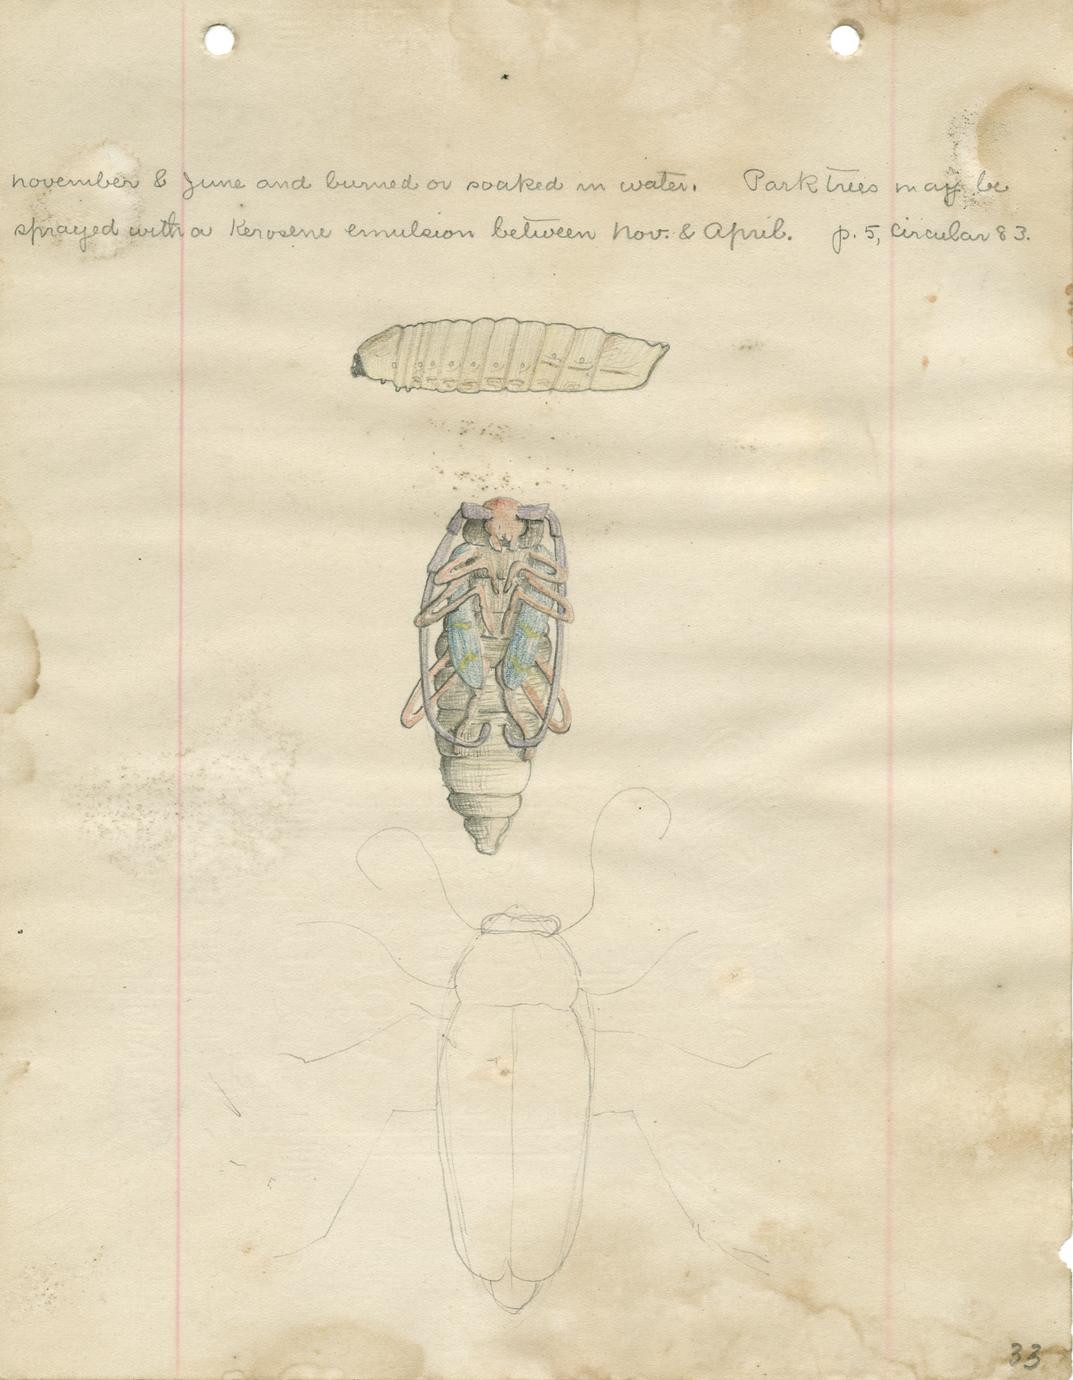 november & June and burned or soaked in water. Park trees may be
sprayed with a Kerosene emulsion between Nov. & April. p. 5, Circular 83.
33